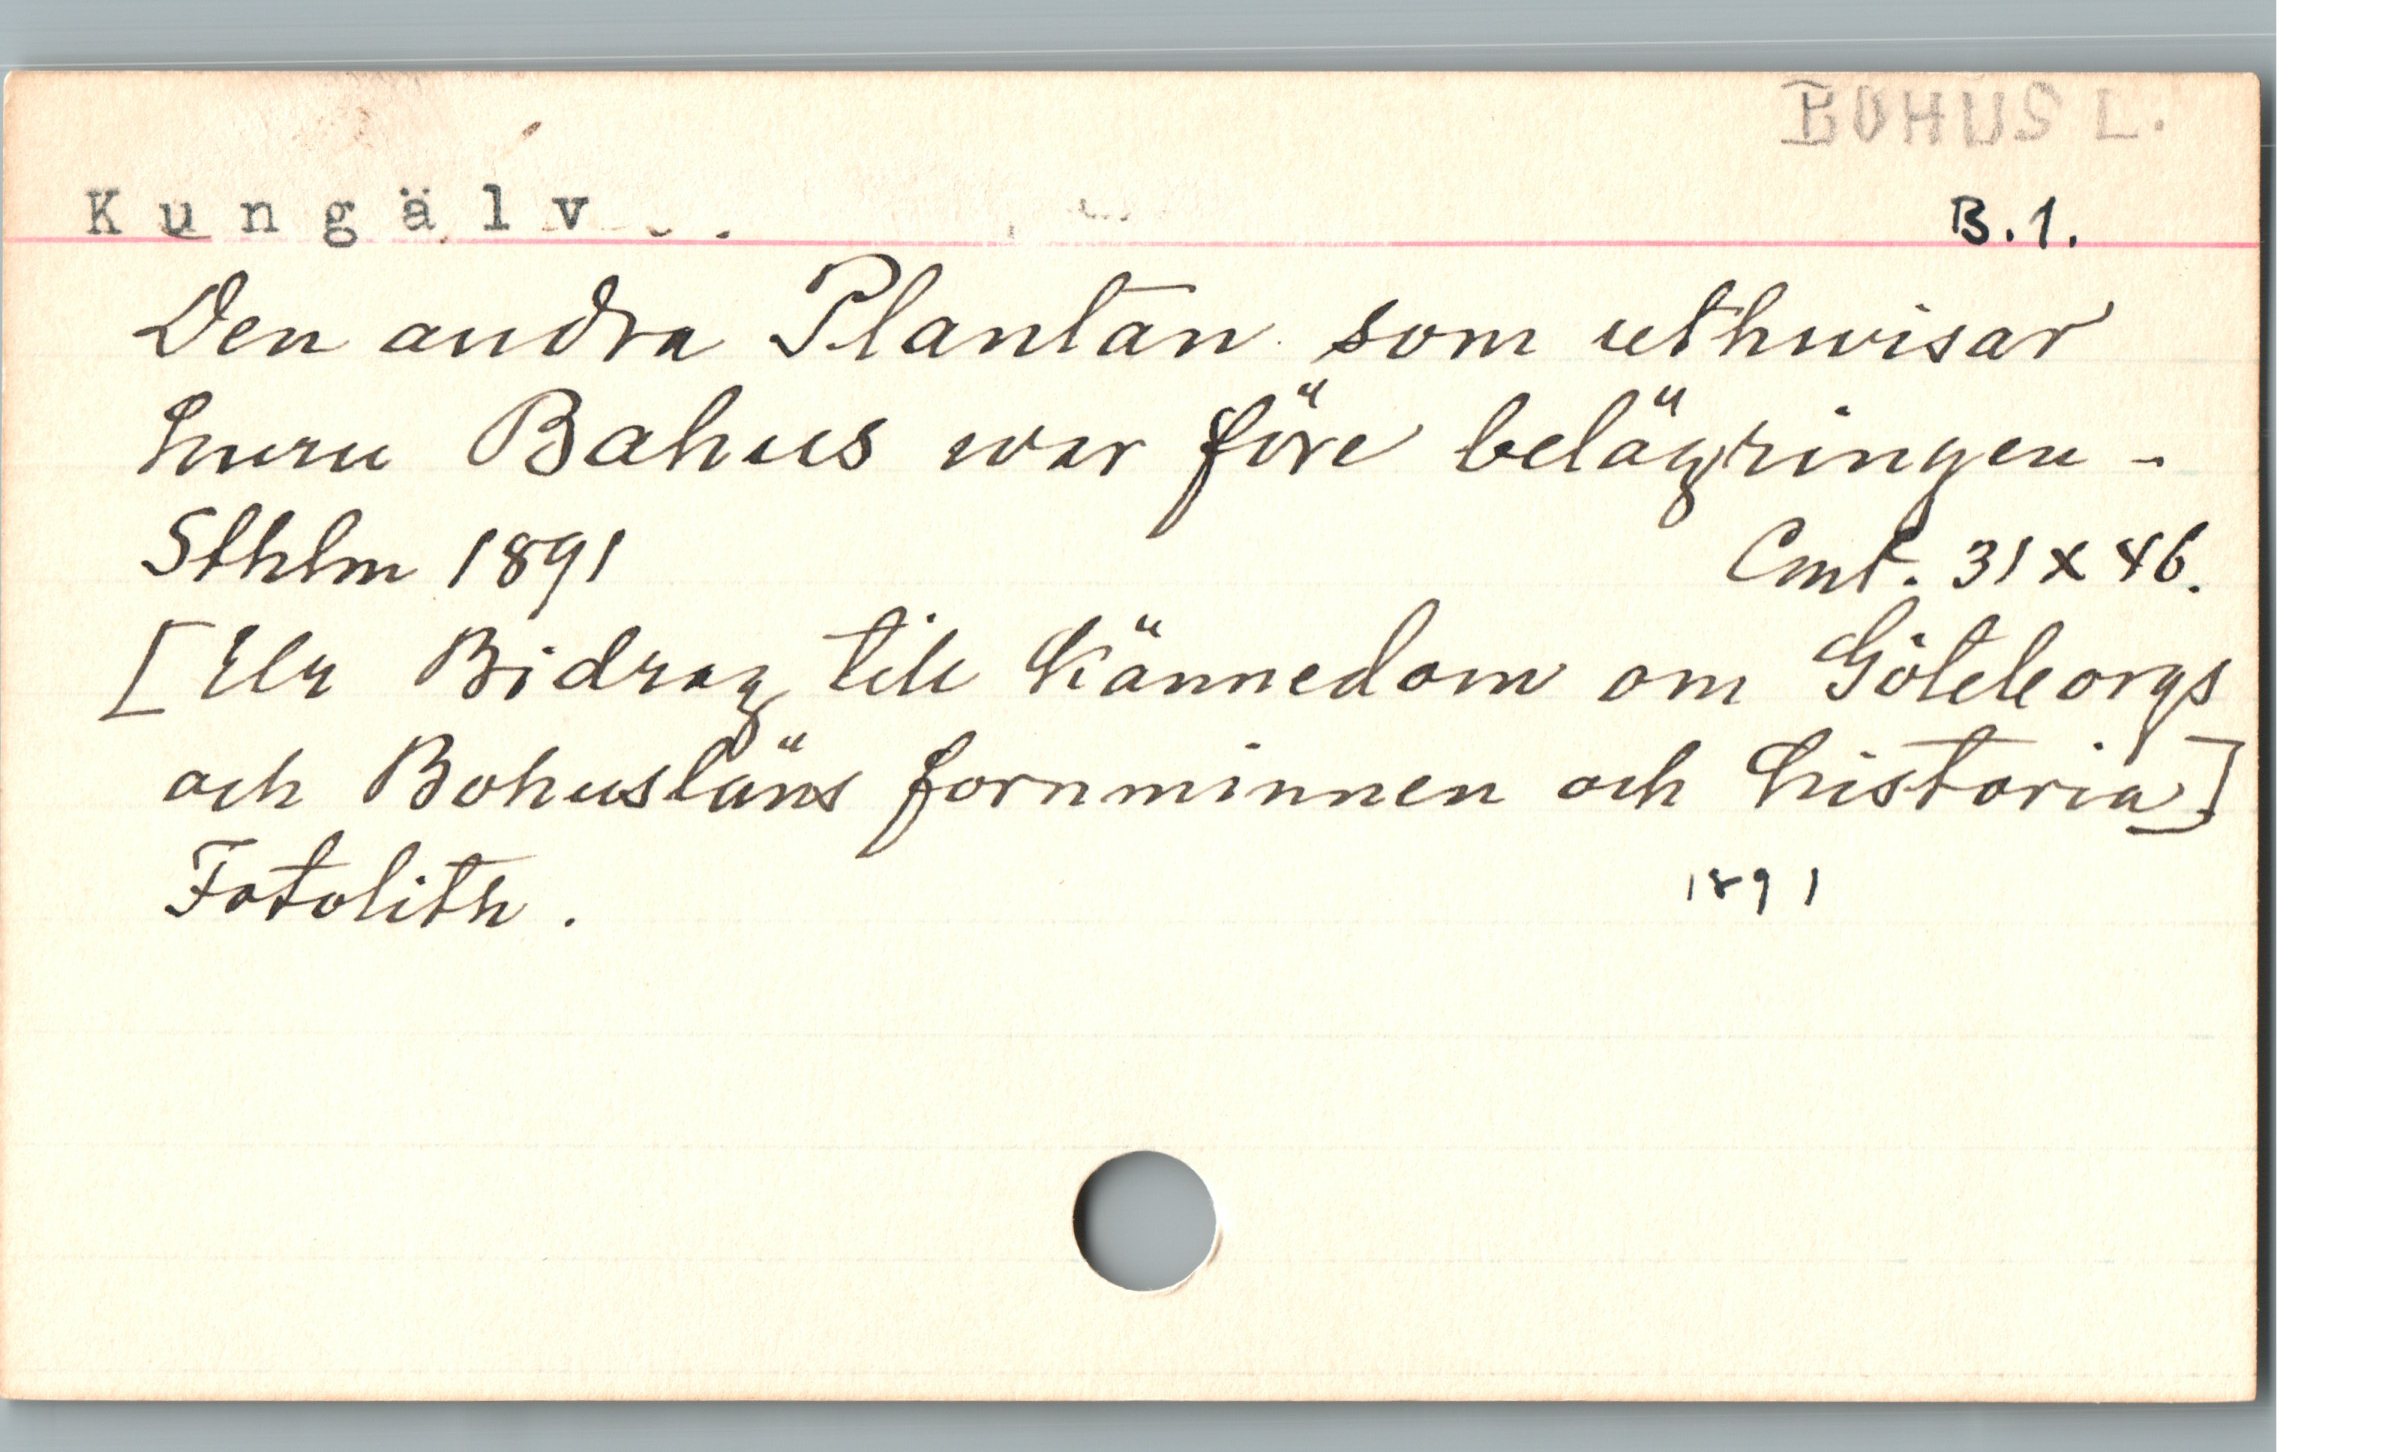 BOHUSL.
Kungälv
B.1.
Den andra Plantan som uthwisar
huru Bahus war före belägringen -
Sthlm 1891 Cmt. 31 x 46.
[Ur Bidrag till kännedom om Göteborgs
och Bohusläns fornminnen och historia]
Fotolith. 1891